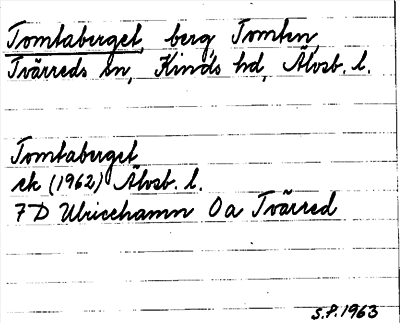 Tomtaberget, berg, Tomten,
Tvärreds sn, Kinds hd, Älvsb. l.
Tomtaberget
ek (1962) Älvsb. l.
7D Ulricehamn 0a Tvärred
S.P. 1963